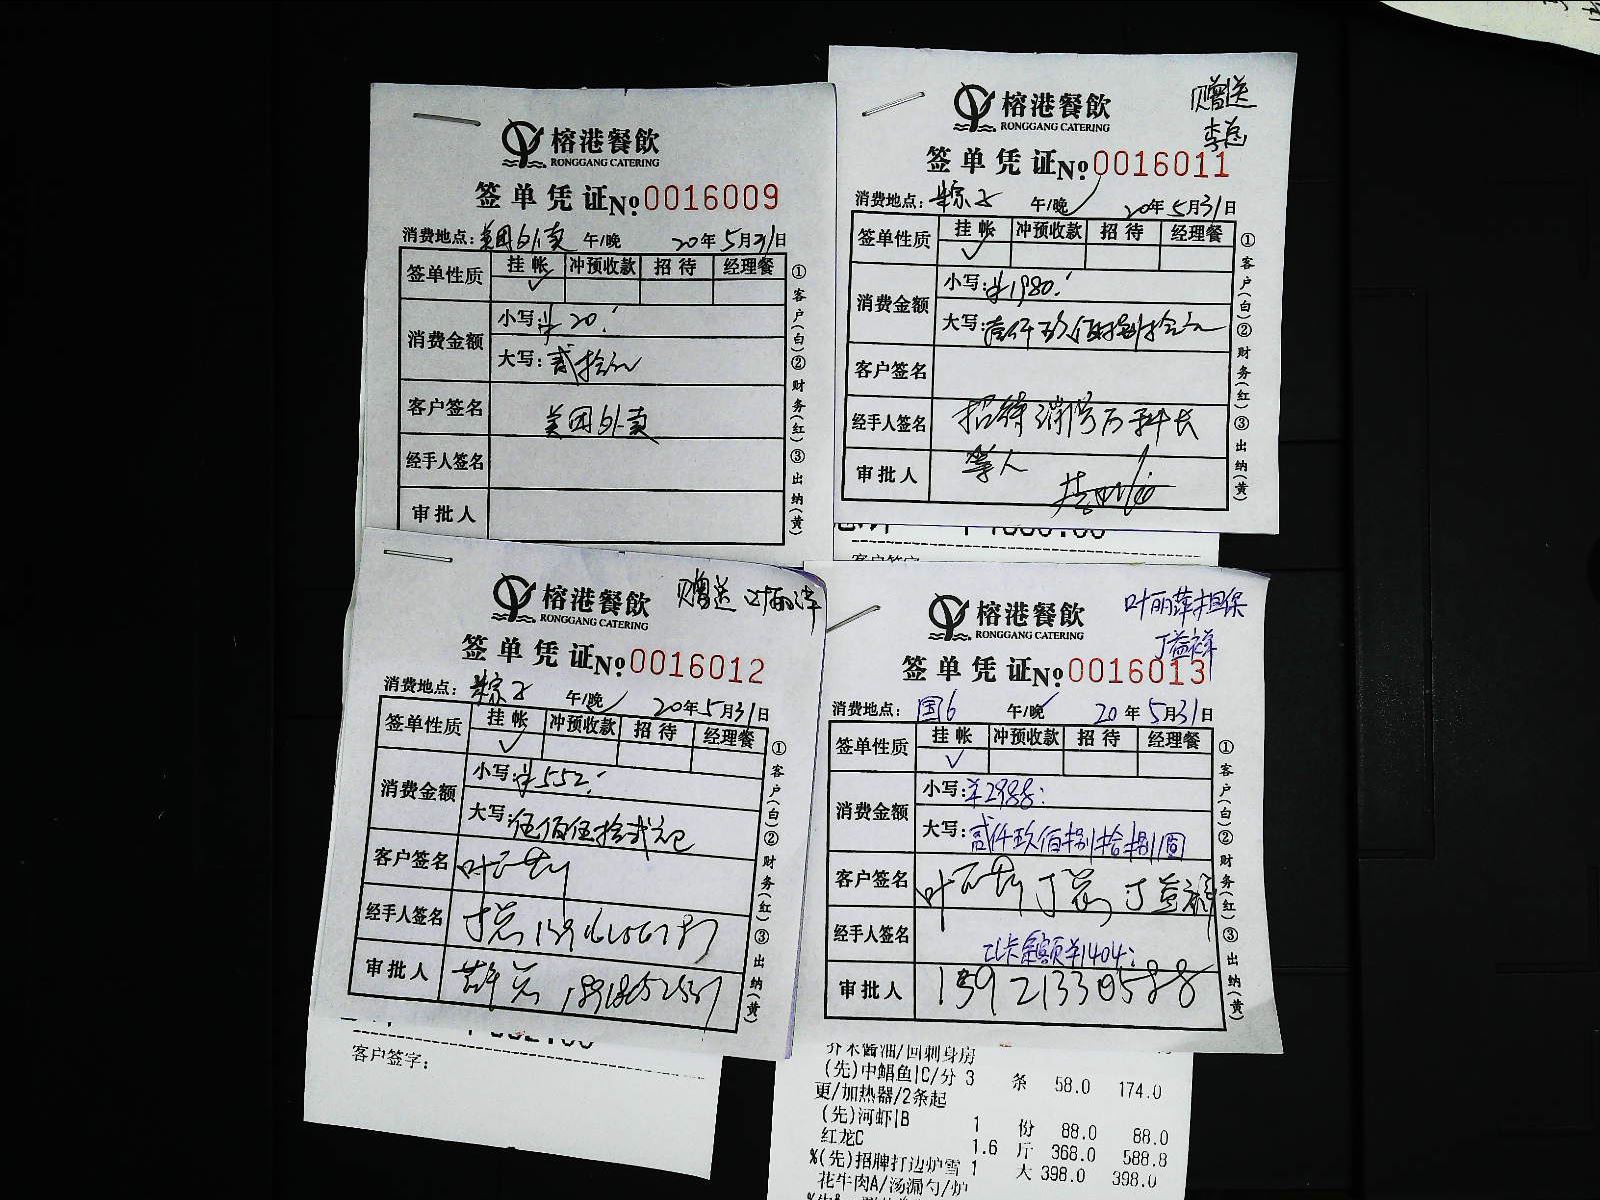 榕港餐飲
RONGGANG CATERING
签单凭证No.0016009
消费地点：美团外卖 午/晚 20年5月31日
签单性质 挂帐 冲预收款 招待 经理餐
✓
消费金额 小写：¥20.
大写：贰拾元
客户签名 美团外卖
经手人签名
审批人
①客户(白)②财务(红)③出纳(黄)
赠送
李总
榕港餐飲
RONGGANG CATERING
签单凭证No.0016011
消费地点： 午/晚 20年5月31日
签单性质 挂帐 冲预收款 招待 经理餐
✓
消费金额 小写：¥1980.
大写：壹仟玖佰捌拾元
客户签名
经手人签名 招待 科长
审批人
①客户(白)②财务(红)③出纳(黄)
客户签字
赠送 叶丽萍
榕港餐飲
RONGGANG CATERING
签单凭证No.0016012
消费地点： 午/晚 20年5月31日
签单性质 挂帐 冲预收款 招待 经理餐
✓
消费金额 小写：¥552.
大写：伍佰伍拾贰元
客户签名
经手人签名
审批人
①客户(白)②财务(红)③出纳(黄)
客户签字：
叶丽萍担保
丁益祥
榕港餐飲
RONGGANG CATERING
签单凭证No.0016013
消费地点：国6 午/晚 20年5月31日
签单性质 挂帐 冲预收款 招待 经理餐
✓
消费金额 小写：¥2988.
大写：贰仟玖佰捌拾捌圆
客户签名 丁益祥
经手人签名 卡余额¥1404.
审批人 13921330588
①客户(白)②财务(红)③出纳(黄)
芥末酱油/回刺身房
(先)中鲳鱼|C/分 3 条 58.0 174.0
更/加热器/2条起
(先)河虾|B 1 份 88.0 88.0
红龙C 1.6 斤 368.0 588.8
%(先)招牌打边炉雪 1 大 398.0 398.0
花牛肉A/汤漏勺/炉